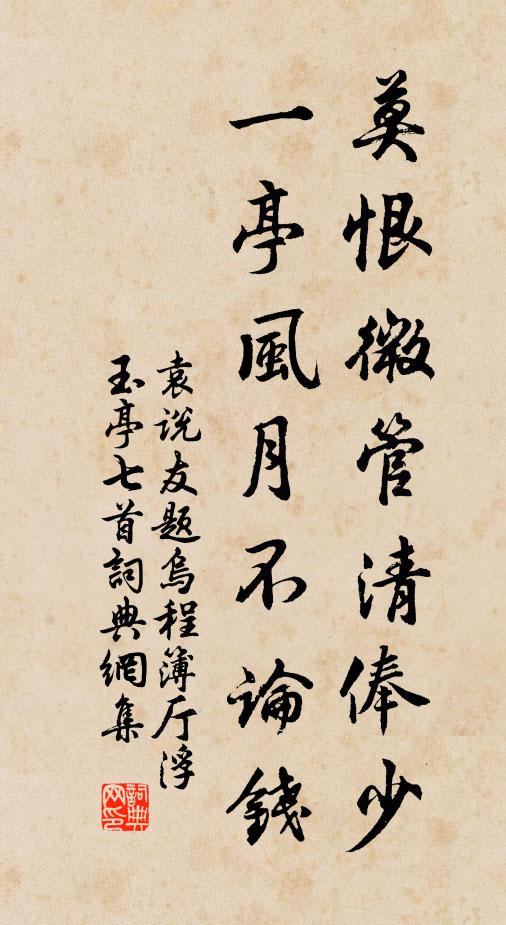 莫恨微管清俸少
一亭風月不論錢
袁说友题烏程簿厅浮
玉亭七首詞典網集
詞典网印